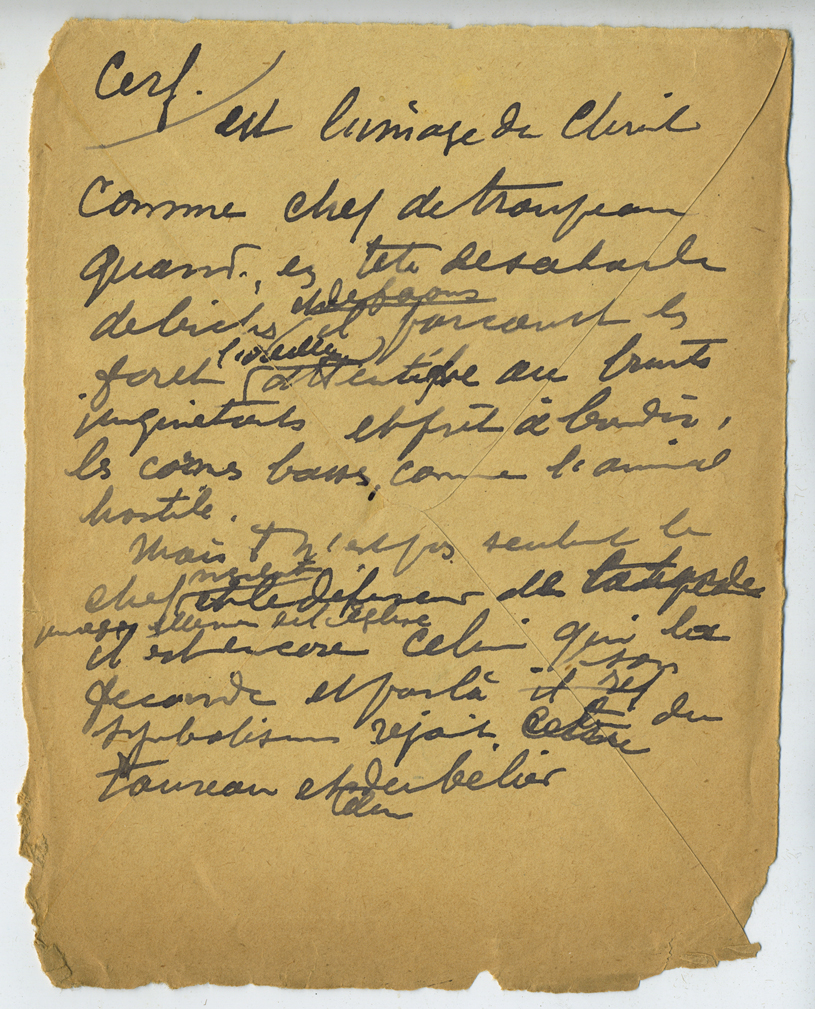 Cerf.
est l'image du Christ
comme chef de troupeau
quand, en tête de sa harde
et de faons
de biches, il parcourt les
l'oreille
foret attentive au bruits
inquietants et prêt à bondir,
les cornes basses, comme l'animal
hostile.
Mais il n'est pas seulement le
chef et le défenseur de la
est l'église
il est encore celui qui la
feconde et par là il son
symbolisme rejoint celui du
taureau et du bélier